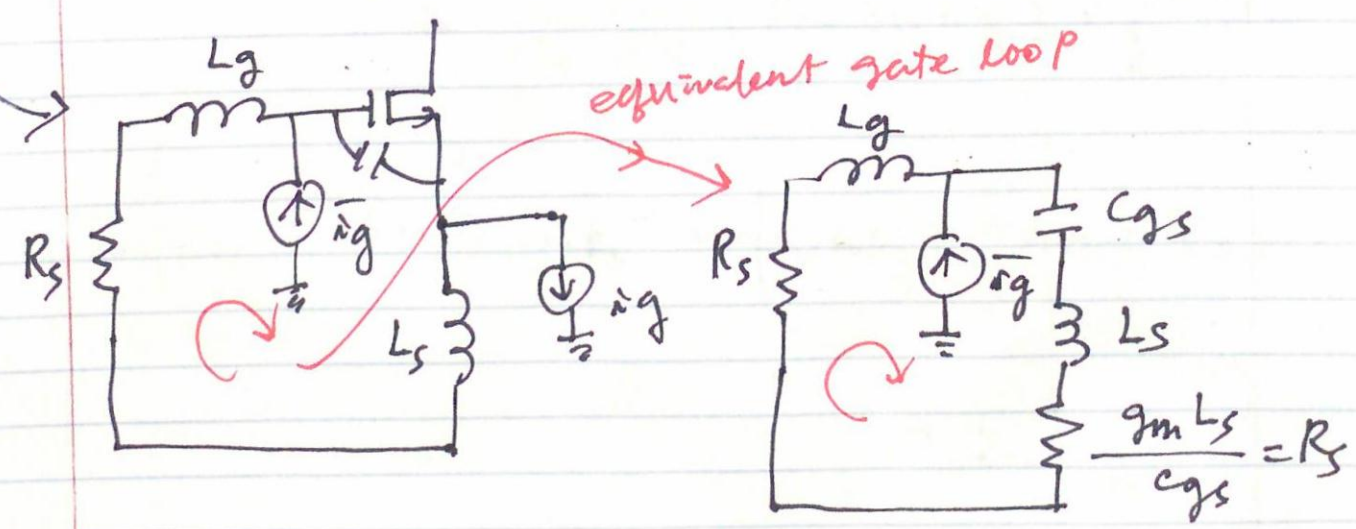 Lg
equivalent gate loop
Lg
Rs
ig
Ls
ig
Rs
ig
Cgs
Ls
gm Ls
Cgs
= Rs